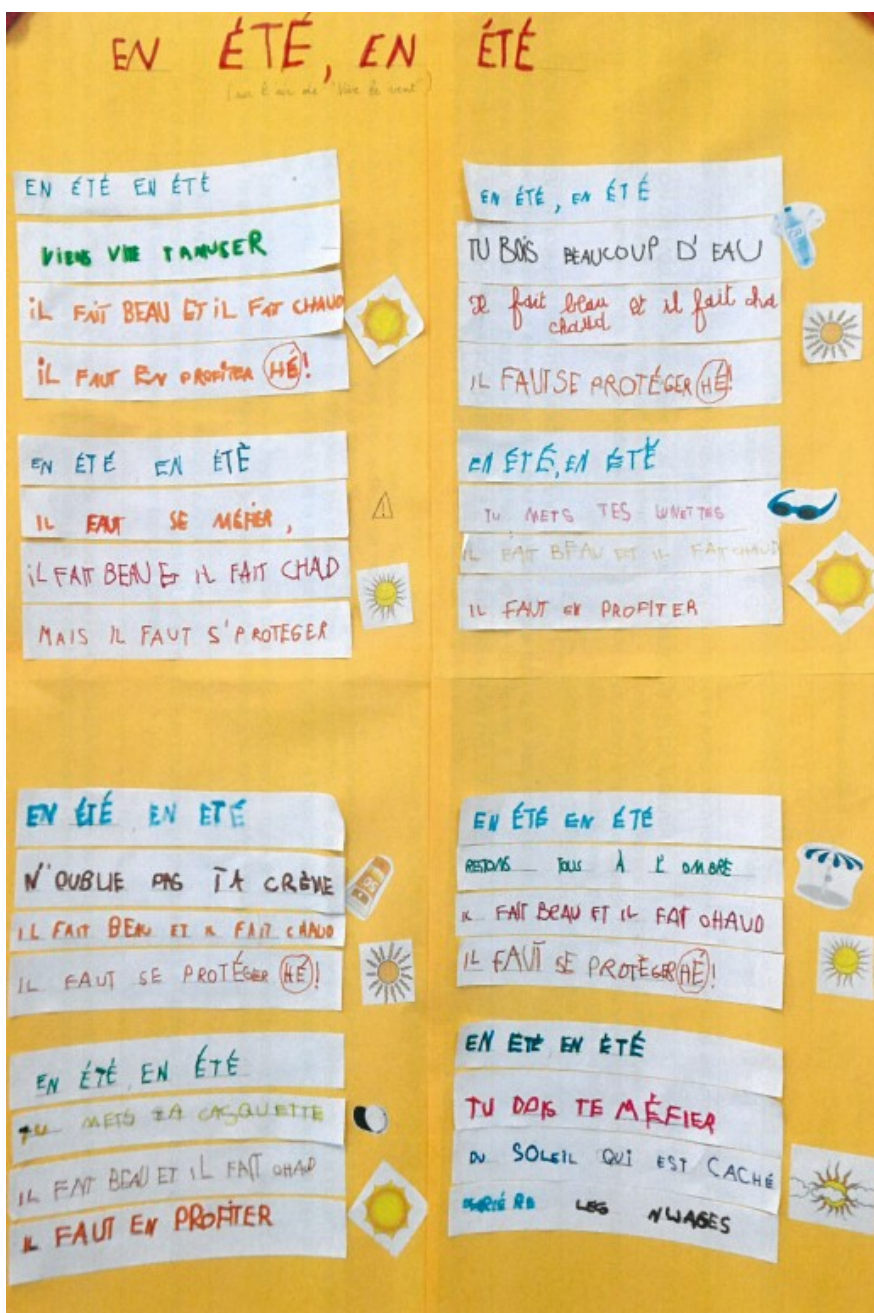 EN ÉTÉ, EN ÉTÉ
(sur l'air de "Vive le vent")
EN ÉTÉ EN ÉTÉ
VIENS VITE T'AMUSER
IL FAIT BEAU ET IL FAIT CHAUD
IL FAUT EN PROFITER HÉ!
EN ÉTÉ EN ÉTÈ
IL FAUT SE MÉFIER,
IL FAIT BEAU ET IL FAIT CHAD
MAIS IL FAUT S'PROTEGER
EN ÉTÉ EN ETÉ
N'OUBLIE PAS TA CRÈME
IL FAIT BEAU ET IL FAIT CHAUD
IL FAUT SE PROTÉGER HÉ!
EN ÉTÉ EN ÉTÉ
TU METS TA CASQUETTE
IL FAIT BEAU ET IL FAIT CHAUD
IL FAUT EN PROFITER
EN ÉTÉ, EN ÉTÉ
TU BOIS BEAUCOUP D'EAU
Il fait beau et il fait cha
chaud
IL FAUT SE PROTÉGER HÉ!
EN ÉTÉ, EN ÉTÉ
TU METS TES LUNETTES
IL FAIT BEAU ET IL FAIT CHAUD
IL FAUT EN PROFITER
EN ÉTÉ EN ÉTÉ
RESTONS TOUS À L'OMBRE
IL FAIT BEAU ET IL FAIT CHAUD
IL FAUT SE PROTÈGER HÉ!
EN ÉTÉ EN ÉTÉ
TU DOIS TE MÉFIER
DU SOLEIL QUI EST CACHÉ
LES NUAGES